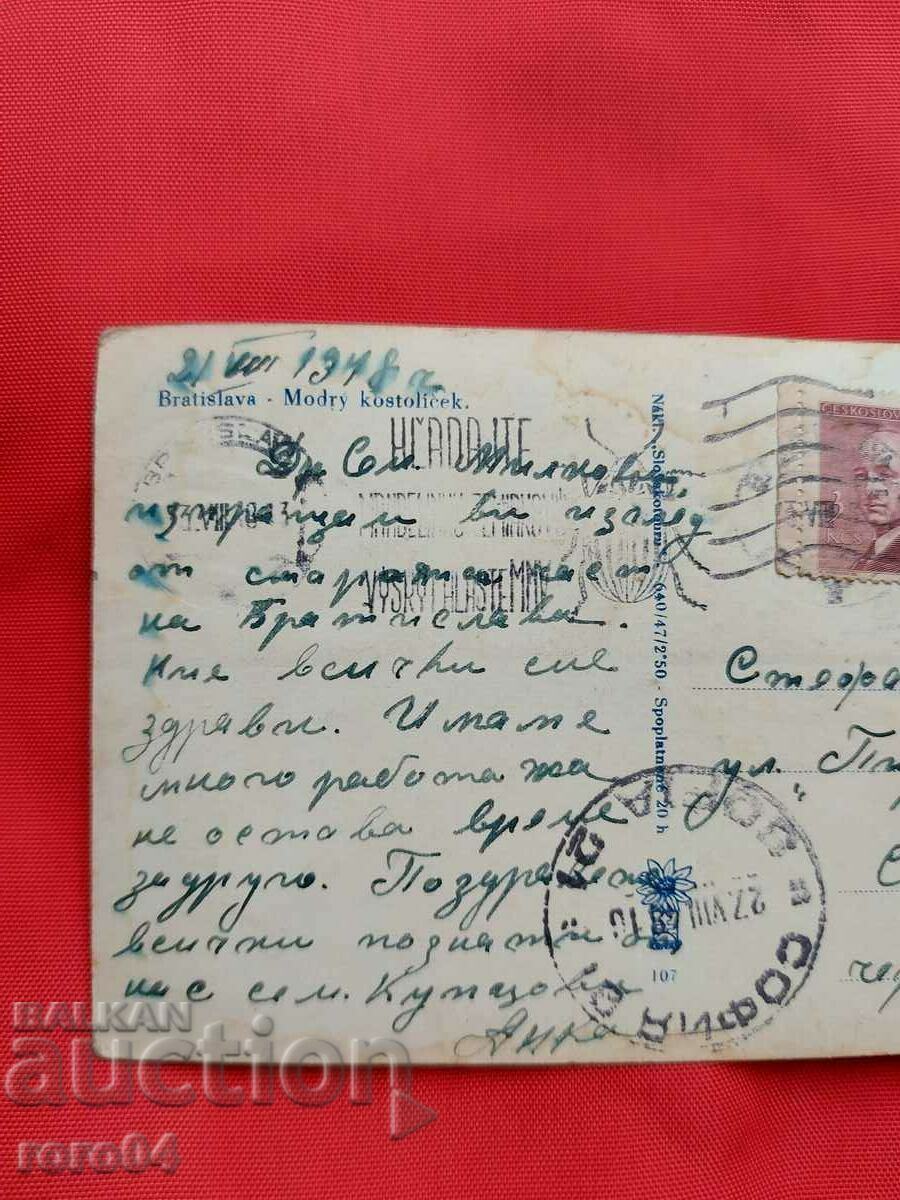 21 VIII 1948 г.
Bratislava - Modrý kostolíček.
HĽADAJTE
VÝSKYT HLÁSTE MNV
До Сем.
изпращам ви изглед
от старата част
на Братислава.
Ние всички сме
здрави. Имаме
много работа
не остава време
за друго. Поздравете
всички познати
нас сем. Купцови
Анка
Nákl. „Slovakotour" 640/47/2'50 - Spoplatnené 20 h
107
ČESKOSLOV
2
KČS
Стефа
ул. "Пи
С
СОФИЯ
27.VIII
BALKAN
auction
roro04